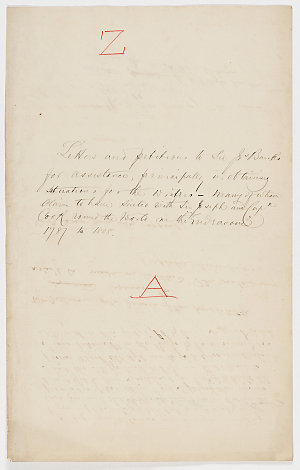 Z
Letters and petitions to Sir J. Banks
for assistance, principally in obtaining
situations for the Writers - Many of whom
claim to have sailed with Sir Joseph and Capn
Cook round the World in the Endeavour
1787 to 1808.
A